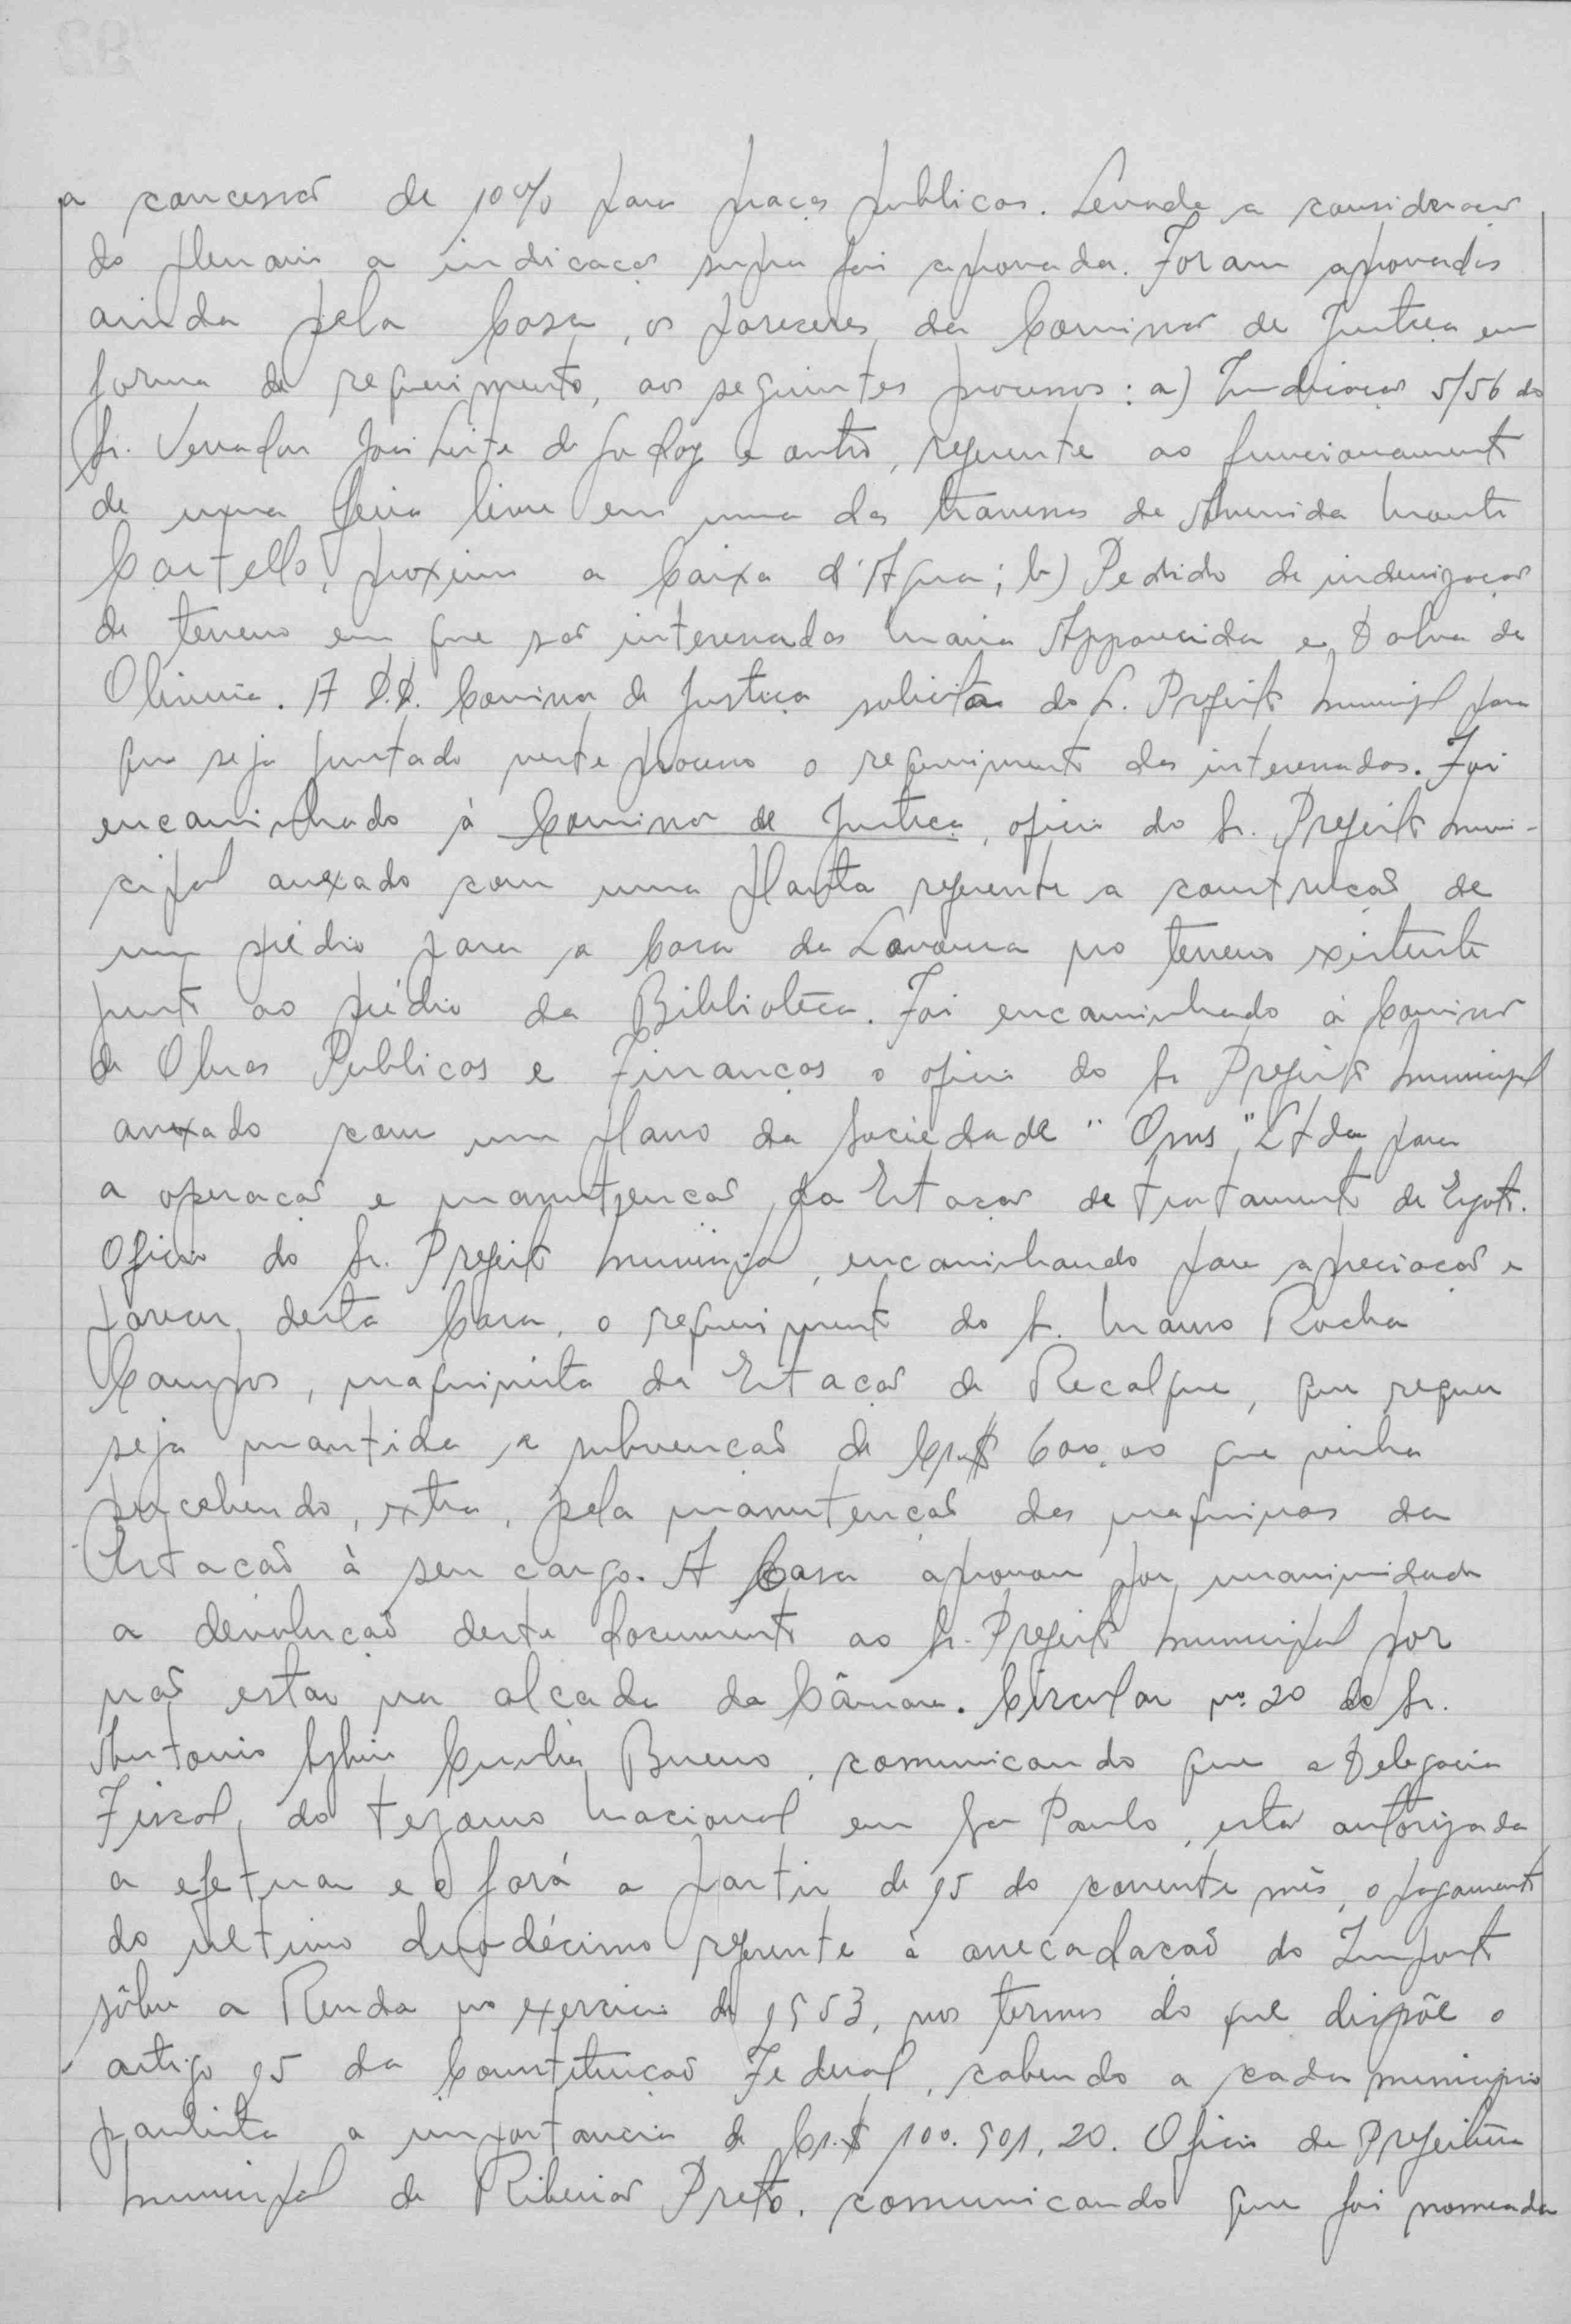 a concessão de 10% para praças publicas. Levada a consideração
do plenario a indicação supra foi aprovada. Foram aprovados
ainda pela Casa, os pareceres da Comissão de Justiça em
forma de requerimento, aos seguintes processos: a) Indicação 5/56 do
Sr. Vereador José Leite de Godoy e outro, referente ao funcionamento
de uma feira livre em uma das travessas da Avenida Monte
Castello, proximo a Caixa d'Agua; b) Pedido de indenização
de terreno em que são interessados Maria Apparecida e Dalva de
Oliveira. A D.D. Comissão de Justiça solicita do Sr. Prefeito Municipal para
que seja juntado neste processo o requerimento dos interessados. Foi
encaminhado à Comissão de Justiça, oficio do Sr. Prefeito Muni-
cipal anexado com uma planta referente a construção de
um prédio para a Casa da Lavoura no terreno existente
junto ao prédio da Biblioteca. Foi encaminhado à Comissão
de Obras Publicas e Finanças o oficio do Sr Prefeito Municipal
anexado com um plano da Sociedade "Opus" Ltda para
a operação e manutenção da Estação de tratamento de Esgoto.
Oficio do Sr. Prefeito Municipal, encaminhando para apreciação e
parecer desta Casa, o requerimento do Sr. Mauro Rocha
Campos, maquinista da Estação de Recalque, que requer
seja mantida a subvenção de Cr.$ 600,00 que vinha
percebendo, extra, pela manutenção das maquinas da
Estação à seu cargo. A Casa aprovou por unanimidade
a devolução deste documento ao Sr. Prefeito Municipal por
não estar na alçada da Câmara. Circular nº 20 do Sr.
Antonio Sylvio Cunha Bueno, comunicando que a Delegacia
Fiscal, do tezouro Nacional em São Paulo, está autorizada
a efetuar e o fará a partir de 15 do corrente mês, o pagamento
do ultimo duodécimo referente à arrecadação do Imposto
sôbre a Renda no exercicio de 1953, nos termos do que dispõe o
artigo 15 da Constituição Federal, cabendo a cada municipio
paulista a importancia de Cr.$ 100.901,20. Oficio da Prefeitura
Municipal de Ribeirão Preto, comunicando que foi nomeada